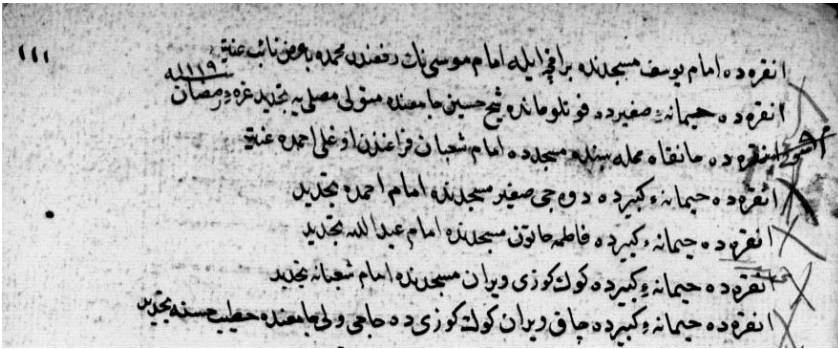 ١١١
انقره ده امام يوسف مسجدنده بر اقچه ايله امام موسى نك رفعندن محمده با عرض نائب عنه
١١١٩ سنه
انقره ده حيمانۀ صغيرده قوتلوخانده شيخ حسين جامعنده متولى مصلى يه تجديد غره رمضان
انقره ده خانقاه محله سنده مسجدده امام شعبان فراغندن اوغلى احمده عنه
انقره ده حيمانۀ كبيرده دوه جى صغير مسجدنده امام احمده تجديد
انقره ده حيمانۀ كبيرده فاطمه خاتون مسجدنده امام عبد الله تجديد
انقره ده حيمانۀ كبيرده كوك كوزى ويران مسجدنده امام شعبانه تجديد
انقره ده حيمانۀ كبيرده چاق ويران كولت كوزى ده حاجى ولى جامعنده خطيب حسنه تجديد